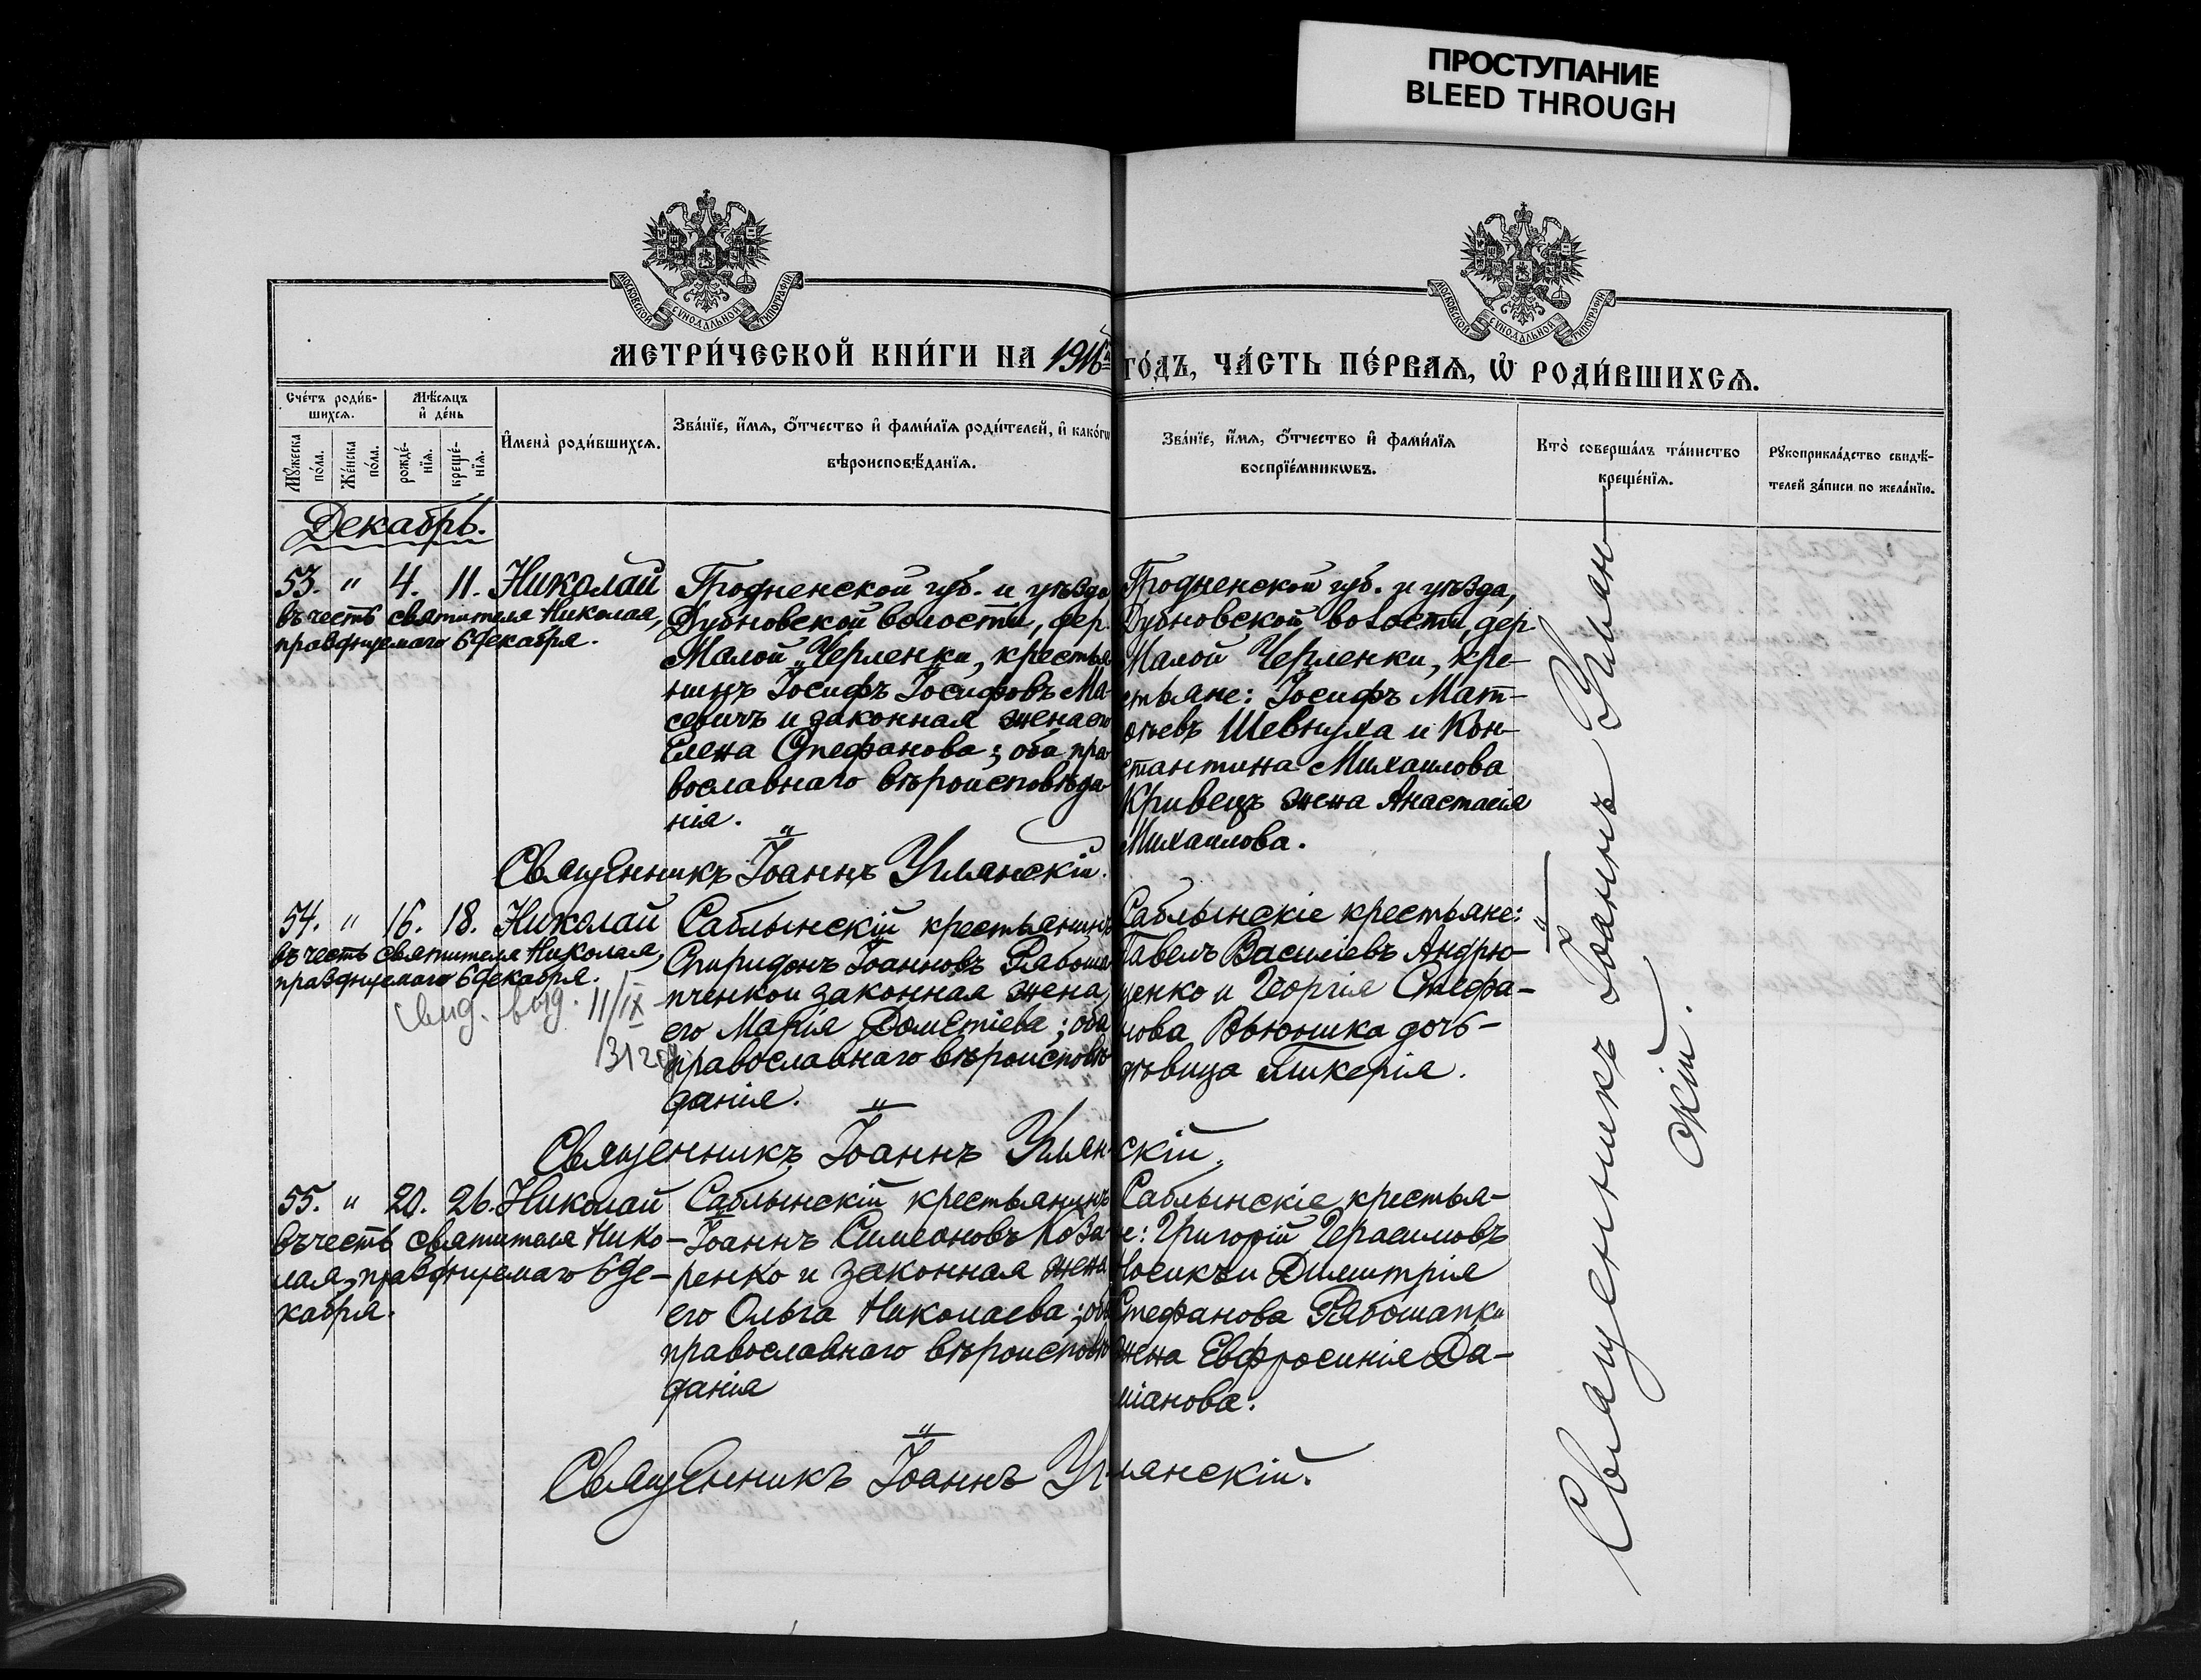 ПРОСТУПАНИЕ
BLEED THROUGH
МОСКОВСКОЙ СѴНОДАЛЬНОЙ ТИПОГРАФІИ
МОСКОВСКОЙ СѴНОДАЛЬНОЙ ТИПОГРАФІИ
МЕТРИ́ЧЕСКОЙ КНИ́ГИ НА 1916й ГО́ДЪ, ЧА́СТЬ ПЕ́РВАѦ, Ѡ҆ РОДИ́ВШИХСѦ.
Сче́тъ роди́в-
шихсѧ.
Мꙋ́жеска
по́ла.
Же́нска
по́ла.
Мѣ́сѧцъ
и҆ де́нь
рожде́-
нїѧ.
креще́-
нїѧ.
И҆мена̀ роди́вшихсѧ.
Зва́нїе, и҆́мѧ, ѻ҆́тчество и҆ фами́лїѧ роди́телей, и҆ како́гѡ
вѣроисповѣ́данїѧ.
Зва́нїе, и҆́мѧ, ѻ҆́тчество и҆ фами́лїѧ
воспрїе́мникѡвъ.
Кто̀ соверша́лъ та́инство
креще́нїѧ.
Рꙋкоприкла́дство свидѣ́-
телей за́писи по жела́нїю.
Декабрь.
53. " 4. 11. Николай
въ честь святителя Николая,
празднуемаго 6 декабря.
Гродненской губ. и уѣзда
Дубновской волости, дер.
Малой Черленки, крестья
нинъ Іосифъ Іосифовъ Ма-
севичъ и законная жена его
Елена Стефанова; оба пра
вославнаго вѣроисповѣда
нія.
Гродненской губ. и уѣзда,
Дубновской волости, дер.
Малой Черленки, кре-
стьяне: Іосифъ Мат-
ѳеевъ Шевнуха и Кон-
стантина Михаилова
Кривецъ жена Анастасія
Михаилова.
Священникъ Іоаннъ Углянскій.
54. " 16. 18. Николай
въ честь святителя Николая,
празднуемаго 6 декабря.
Свид. выд. 11/IX
31 г.
Саблынскій крестьянинъ
Спиридонъ Іоанновъ Рябоша
пченко и законная жена
его Марія Дометіева; оба
православнаго вѣроисповѣ
данія.
Саблынскіе крестьяне:
Павелъ Василіевъ Андрю-
щенко и Георгія Стефа-
нова Вьюника дочь-
дѣвица Гликерія.
Священникъ Іоаннъ Углянскій.
55. " 20. 26. Николай
въ честь святителя Нико-
лая, празднуемаго 6 де-
кабря.
Саблынскій крестьянинъ
Іоаннъ Симеоновъ Коза-
ренко и законная жена
его Ольга Николаева; оба
православнаго вѣроисповѣ
данія
Саблынскіе крестья-
не: Григорій Герасимовъ
Носикъ и Димитрія
Стефанова Рябошапки
жена Евфросинія Да-
міанова.
Священникъ Іоаннъ Углянскій.
Священникъ Іоаннъ Углян-
скій.